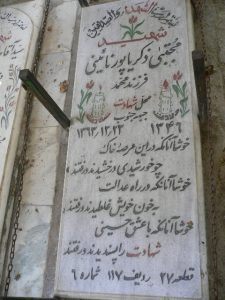 شهید
مجتبی زکریاپور نائینی
فرزند محمد
محل شهادت
جبهه جنوب
۱۳۴۶
خوشا آنانکه در این عرصه خاک
چو خورشیدی درخشیدند و رفتند
خوشا آنانکه در راه عدالت
به خون خویش غلطیدند و رفتند
خوشا آنانکه با عشق حسینی
شهادت را پسندیدند و رفتند
قطعه ۲۷ ردیف ۱۱۷ شماره ۶